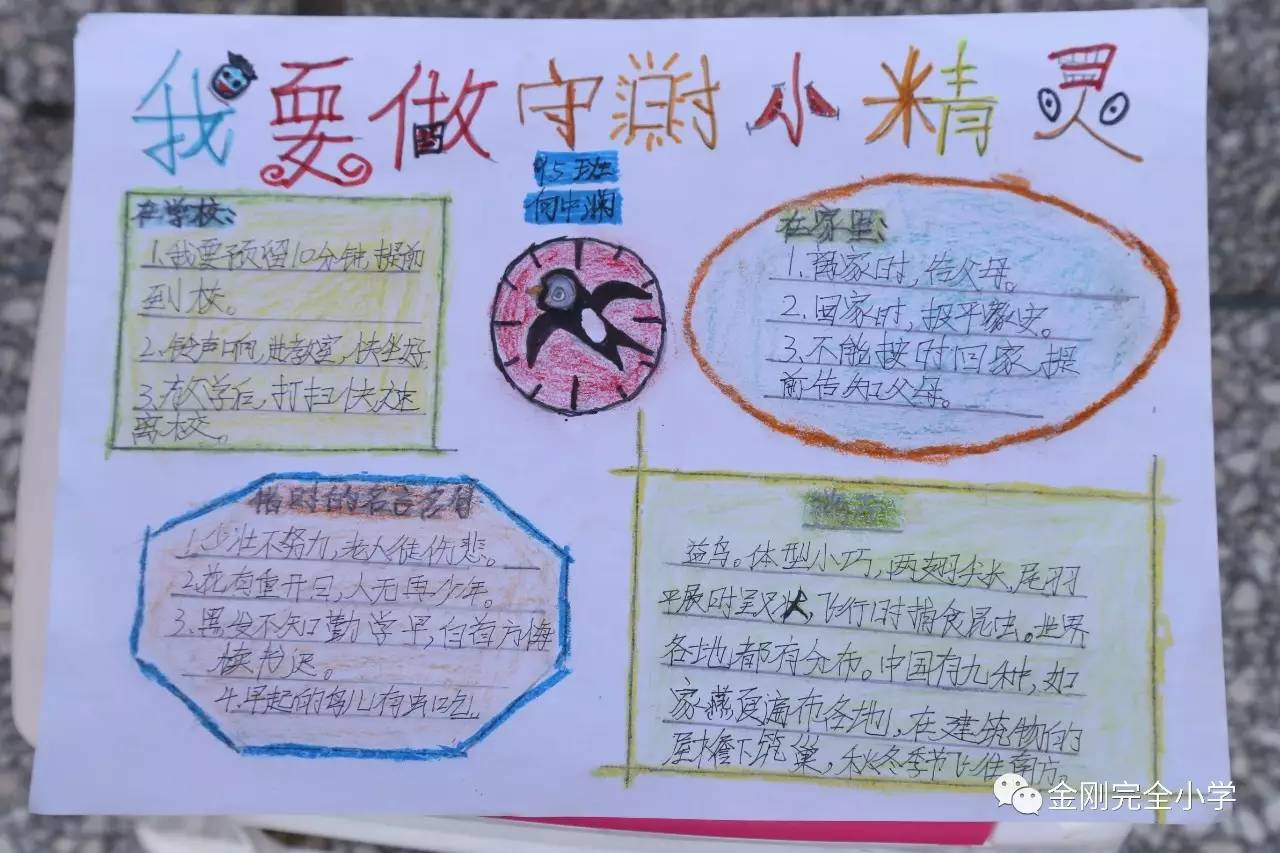 我要做守时小精灵
95班
向中澜
在学校:
1.我要预留10分钟,提前
到校。
2.铃声响,进教室,快坐好
3.放学后,打扫快速
离校。
在家里:
1.离家时,告父母。
2.回家时,报平安。
3.不能按时回家,提
前告知父母。
惜时的名言名句
1.少壮不努力,老大徒伤悲。
2.花有重开日,人无再少年。
3.黑发不知勤学早,白首方悔
读书迟。
4.早起的鸟儿有虫吃
益鸟。体型小巧,两翅尖长,尾羽
平展时呈叉状,飞行时捕食昆虫。世界
各地都有分布。中国有九种,如
家燕夏遍布各地,在建筑物的
屋檐下筑巢,秋冬季节飞往南方。
金刚完全小学